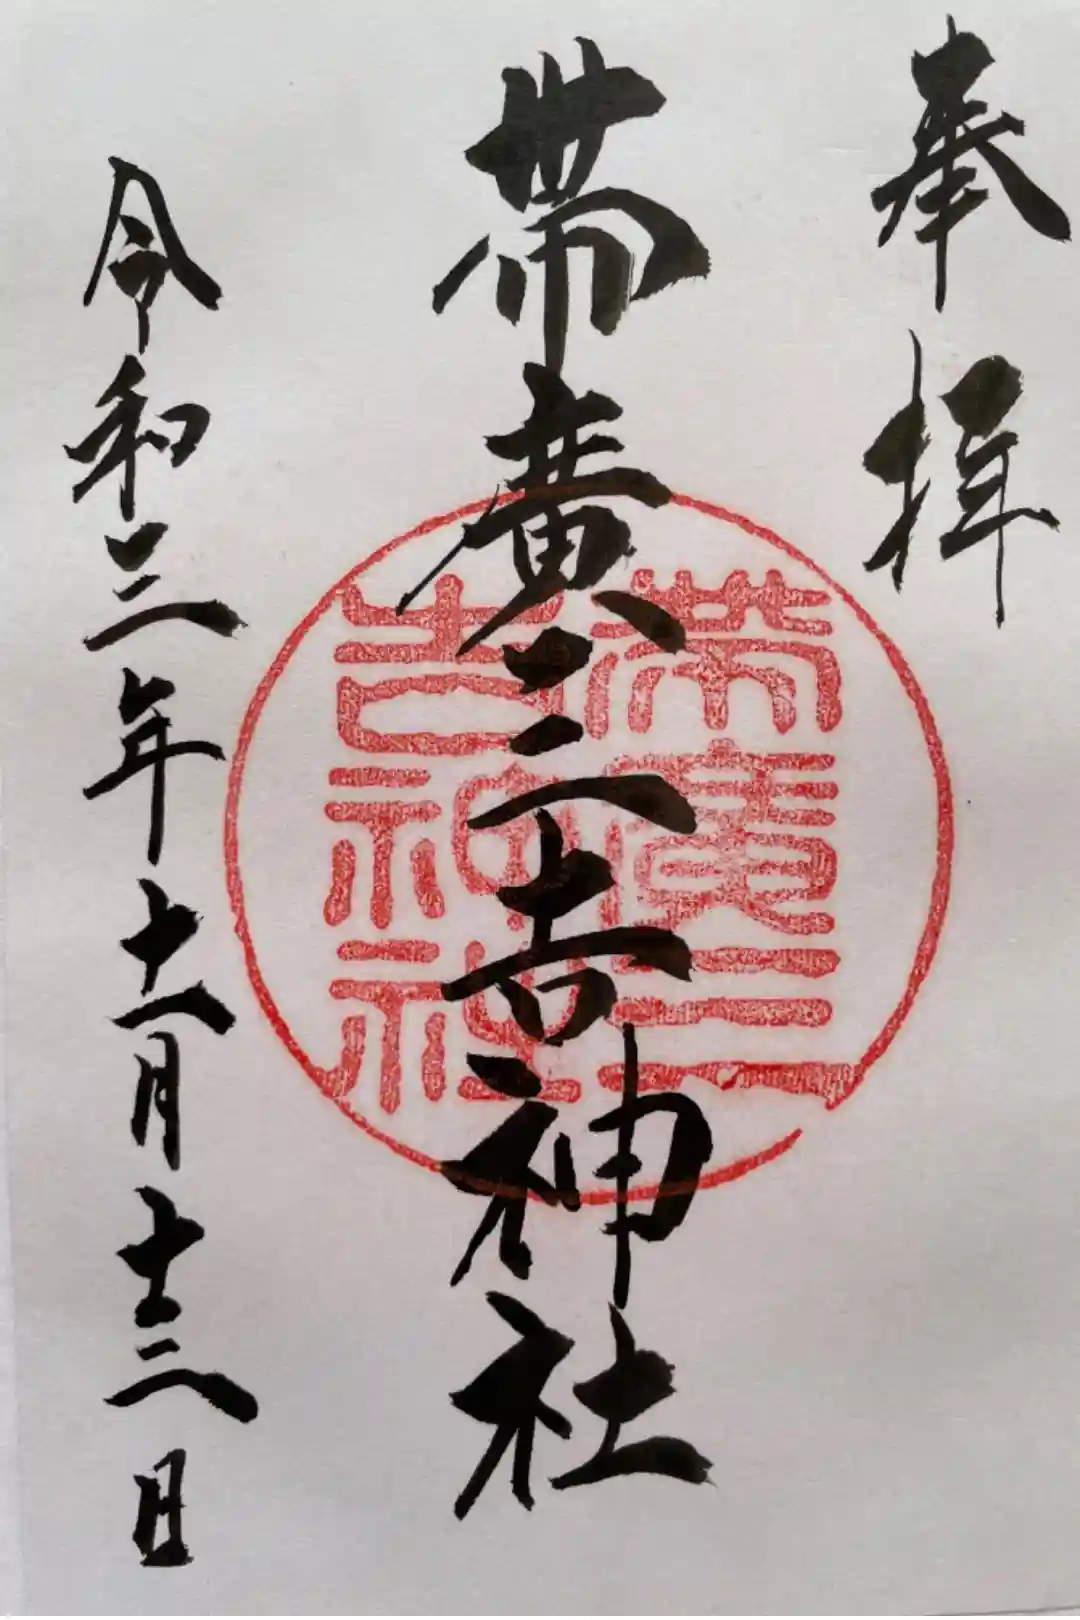 奉拝
帯廣三吉神社
令和三年十一月十三日
帯廣三
吉神社